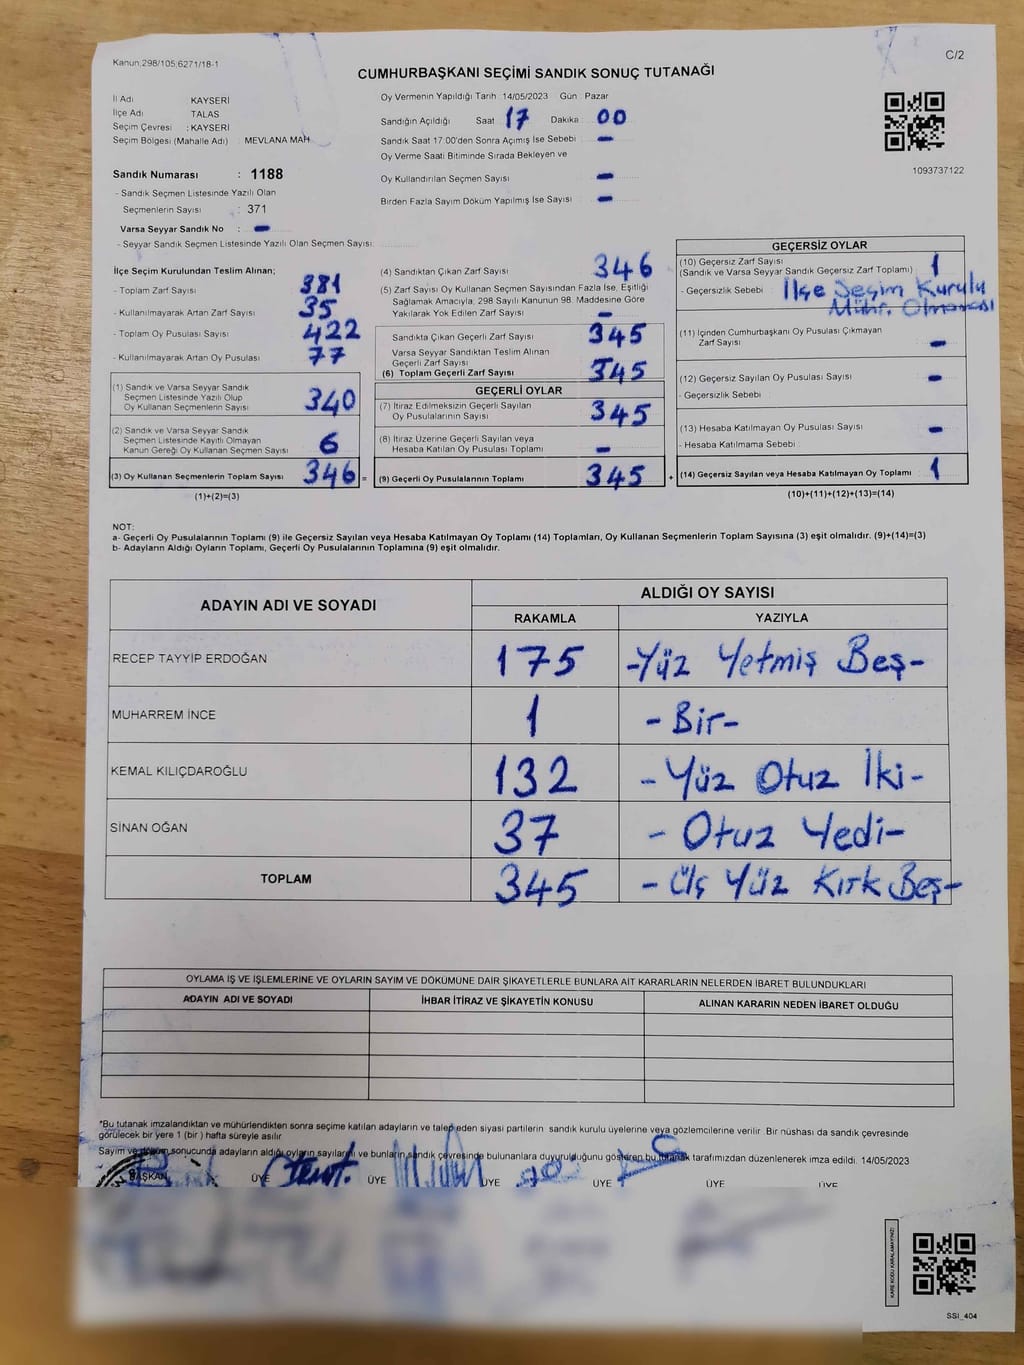 Kanun.298/105;6271/18-1
C/2
CUMHURBAŞKANI SEÇİMİ SANDIK SONUÇ TUTANAĞI
İl Adı KAYSERİ
İlçe Adı TALAS
Seçim Çevresi : KAYSERİ
Seçim Bölgesi (Mahalle Adı) MEVLANA MAH
Sandık Numarası : 1188
- Sandık Seçmen Listesinde Yazılı Olan
Seçmenlerin Sayısı : 371
Varsa Seyyar Sandık No : -
- Seyyar Sandık Seçmen Listesinde Yazılı Olan Seçmen Sayısı:
Oy Vermenin Yapıldığı Tarih :14/05/2023 Gün : Pazar
Sandığın Açıldığı Saat 17 Dakika 00
Sandık Saat 17:00'den Sonra Açımış İse Sebebi -
Oy Verme Saati Bitiminde Sırada Bekleyen ve
Oy Kullandırılan Seçmen Sayısı -
Birden Fazla Sayım Döküm Yapılmış İse Sayısı -
1093737122
İlçe Seçim Kurulundan Teslim Alınan;
- Toplam Zarf Sayısı 381
- Kullanılmayarak Artan Zarf Sayısı 35
- Toplam Oy Pusulası Sayısı 422
- Kullanılmayarak Artan Oy Pusulası 77
(1) Sandık ve Varsa Seyyar Sandık
Seçmen Listesinde Yazılı Olup
Oy Kullanan Seçmenlerin Sayısı 340
(2) Sandık ve Varsa Seyyar Sandık
Seçmen Listesinde Kayıtlı Olmayan
Kanun Gereği Oy Kullanan Seçmen Sayısı 6
(3) Oy Kullanan Seçmenlerin Toplam Sayısı 346 =
(1)+(2)=(3)
(4) Sandıktan Çıkan Zarf Sayısı 346
(5) Zarf Sayısı Oy Kullanan Seçmen Sayısından Fazla İse, Eşitliği
Sağlamak Amacıyla, 298 Sayılı Kanunun 98. Maddesine Göre
Yakılarak Yok Edilen Zarf Sayısı -
Sandıkta Çıkan Geçerli Zarf Sayısı 345
Varsa Seyyar Sandıktan Teslim Alınan
Geçerli Zarf Sayısı
(6) Toplam Geçerli Zarf Sayısı 345
GEÇERLİ OYLAR
(7) İtiraz Edilmeksizin Geçerli Sayılan
Oy Pusulalarının Sayısı 345
(8) İtiraz Üzerine Geçerli Sayılan veya
Hesaba Katılan Oy Pusulası Toplamı -
(9) Geçerli Oy Pusulalarının Toplamı 345 +
GEÇERSİZ OYLAR
(10) Geçersiz Zarf Sayısı
(Sandık ve Varsa Seyyar Sandık Geçersiz Zarf Toplamı) 1
- Geçersizlik Sebebi : İlçe Seçim Kurulu
Mühr. Olmaması
(11) İçinden Cumhurbaşkanı Oy Pusulası Çıkmayan
Zarf Sayısı -
(12) Geçersiz Sayılan Oy Pusulası Sayısı -
- Geçersizlik Sebebi
(13) Hesaba Katılmayan Oy Pusulası Sayısı -
- Hesaba Katılmama Sebebi :
(14) Geçersiz Sayılan veya Hesaba Katılmayan Oy Toplamı 1
(10)+(11)+(12)+(13)=(14)
NOT:
a- Geçerli Oy Pusulalarının Toplamı (9) ile Geçersiz Sayılan veya Hesaba Katılmayan Oy Toplamı (14) Toplamları, Oy Kullanan Seçmenlerin Toplam Sayısına (3) eşit olmalıdır. (9)+(14)=(3)
b- Adayların Aldığı Oyların Toplamı, Geçerli Oy Pusulalarının Toplamına (9) eşit olmalıdır.
ADAYIN ADI VE SOYADI ALDIĞI OY SAYISI
RAKAMLA YAZIYLA
RECEP TAYYİP ERDOĞAN 175 -Yüz Yetmiş Beş-
MUHARREM İNCE 1 -Bir-
KEMAL KILIÇDAROĞLU 132 -Yüz Otuz İki-
SİNAN OĞAN 37 -Otuz Yedi-
TOPLAM 345 -Üç Yüz Kırk Beş-
OYLAMA İŞ VE İŞLEMLERİNE VE OYLARIN SAYIM VE DÖKÜMÜNE DAİR ŞİKAYETLERLE BUNLARA AİT KARARLARIN NELERDEN İBARET BULUNDUKLARI
ADAYIN ADI VE SOYADI İHBAR İTİRAZ VE ŞİKAYETİN KONUSU ALINAN KARARIN NEDEN İBARET OLDUĞU
*Bu tutanak imzalandıktan ve mühürlendikten sonra seçime katılan adayların ve talep eden siyasi partilerin sandık kurulu üyelerine veya gözlemcilerine verilir. Bir nüshası da sandık çevresinde
görülecek bir yere 1 (bir ) hafta süreyle asılır
Sayım ve döküm sonucunda adayların aldığı oyların sayılarını ve bunların sandık çevresinde bulunanlara duyurulduğunu gösteren bu tutanak tarafımızdan düzenlenerek imza edildi. 14/05/2023
BAŞKAN ÜYE ÜYE ÜYE ÜYE ÜYE ÜYE
KARE KODU KARALAMAYINIZ!
SSI_404